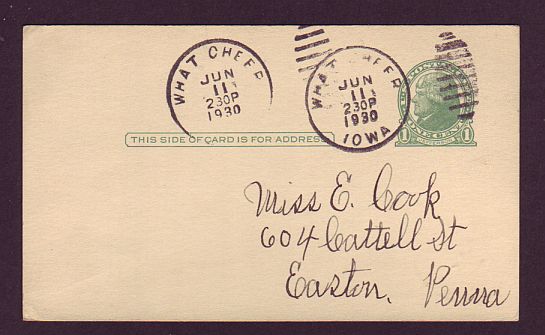 WHAT CHEER
JUN
11
230P
1930
WHAT CHEER
JUN
11
230P
1930
IOWA
THIS SIDE OF CARD IS FOR ADDRESS
1 1
Miss E. Cook
604 Cattell St
Easton, Penna